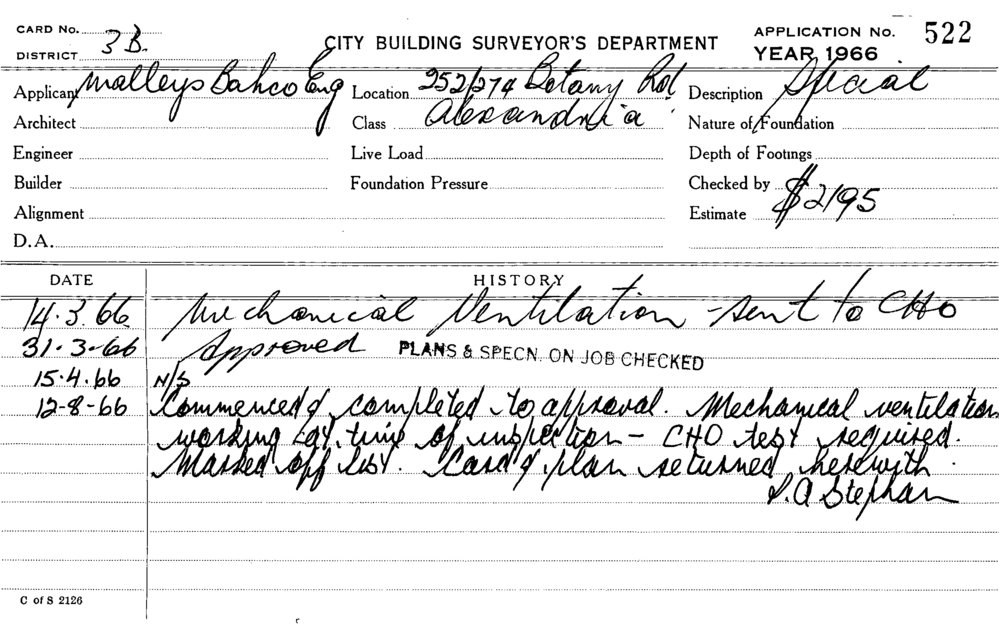 CARD No.
DISTRICT 3B.
CITY BUILDING SURVEYOR'S DEPARTMENT
APPLICATION No. 522
YEAR 1966
Applicant Malleys Bahco Eng
Location 252/274 Botany Rd
Description Special
Architect
Class Alexandria
Nature of Foundation
Engineer
Live Load
Depth of Footings
Builder
Foundation Pressure
Checked by
Alignment
Estimate $2195
D.A.
DATE HISTORY
14.3.66 Mechanical Ventilation sent to CHO
31-3-66 Approved PLANS & SPECN. ON JOB CHECKED
15.4.66 N/S
12-8-66 Commenced & completed to approval. Mechanical ventilation
working at time of inspection - CHO test required.
Marked off list. Card & plan returned herewith.
S.A Stephan
C of S 2126